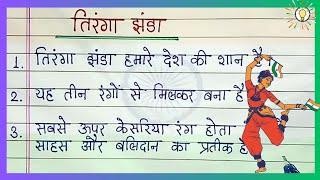 तिरंगा झंडा
1. तिरंगा झंडा हमारे देश की शान है
2. यह तीन रंगों से मिलकर बना है
3. सबसे ऊपर केसरिया रंग होता
साहस और बलिदान का प्रतीक है